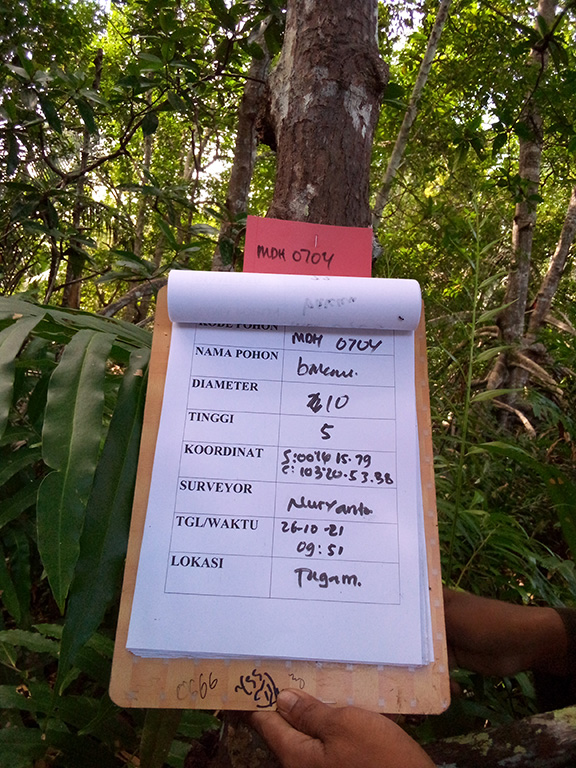 MDH 0704
KODE POHON MDH 0704
NAMA POHON bakau.
DIAMETER 10
TINGGI 5
KOORDINAT S:0014 15.79
E: 10320.53.38
SURVEYOR Nuryanto
TGL/WAKTU 26-10-21
09:51
LOKASI Tagam.
0666